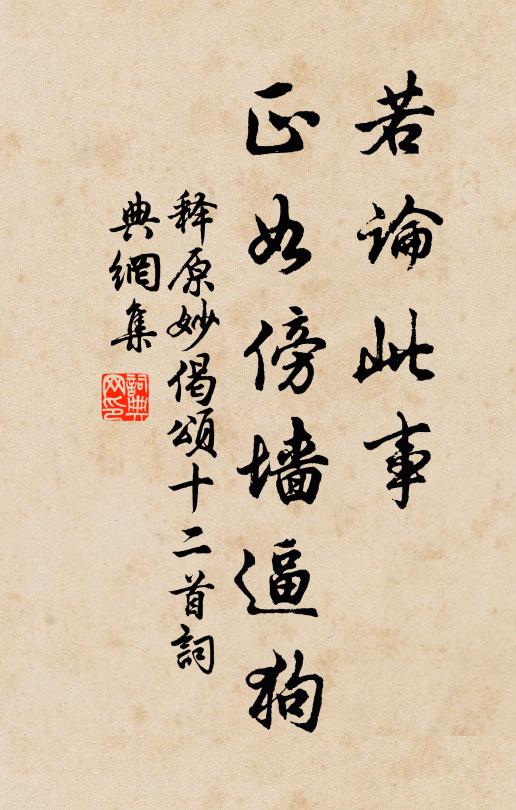 若論此事
正如傍墻逼狗
释原妙偈頌十二首詞
典網集
詞典
网印